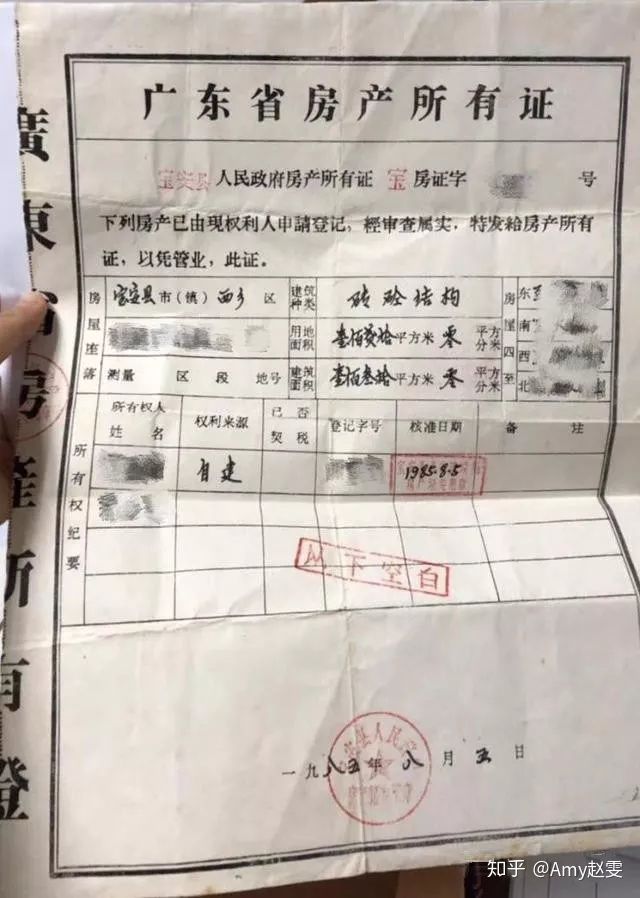 广东省房产所有证
宝安县人民政府房产所有证 宝房证字 号
下列房产已由现权利人申請登记，經审查属实，特发給房产所有
证，以凭管业，此证。
房屋座落 宝安县市(镇)西乡区 建筑种类 砖砼结构 房屋四至 东
用地面积 壹佰贰拾平方米零平方分米 南
西
测量 区 段 地号 建筑面积 壹佰叁拾平方米零平方分米 北
所有权纪要
所有权人姓名 权利来源 已否契税 登记字号 核准日期 备注
自建 1985.8.5
以下空白
一九八五年八月五日
廣東省房產所有證
知乎 @Amy赵雯